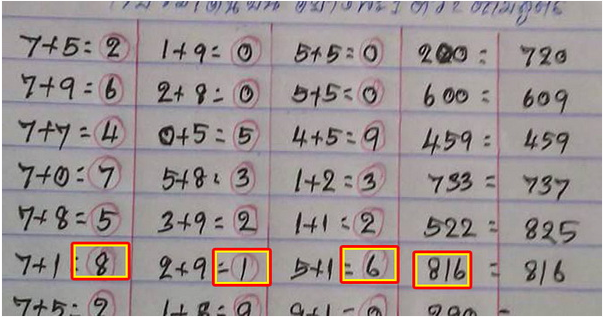 7+5=2 1+9=0 5+5=0 200= 720
7+9=6 2+8=0 5+5=0 600= 609
7+7=4 0+5=5 4+5=9 459= 459
7+0=7 5+8=3 1+2=3 733= 737
7+8=5 3+9=2 1+1=2 522= 825
7+1=8 2+9=1 5+1=6 816= 816
7+5=2 1+8=9 9+1=0